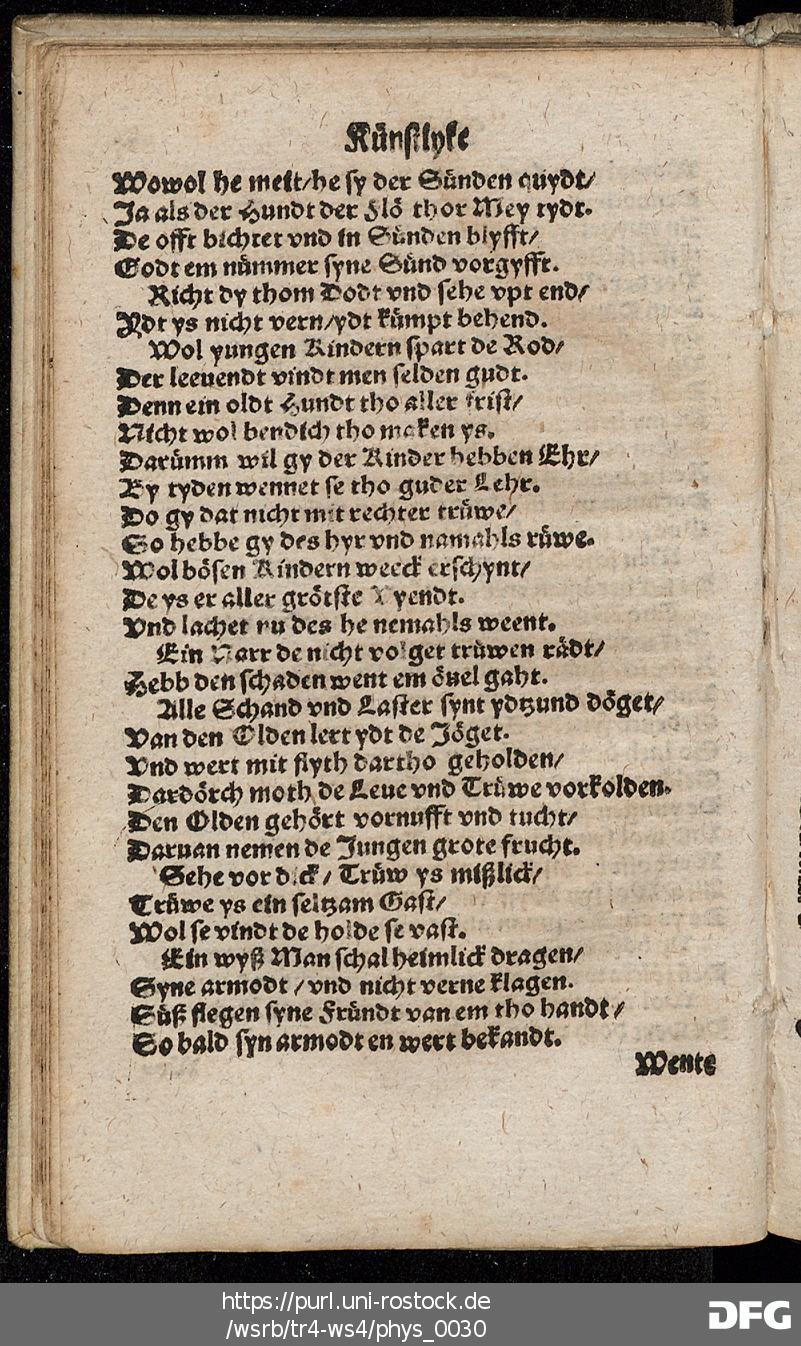 Künstlyke
Wowol he meit/he sy der Sünden quydt/
Ja als der Hundt der Flö thor Mey tydt.
De offt bichtet vnd in Sünden blyfft/
Godt em nümmer syne Sünd vorgyfft.
Richt dy thom Dodt vnd sehe vpt end/
Ydt ys nicht vern/ydt kümpt behend.
Wol yungen Kindern spart de Rod/
Der leeuendt vindt men selden gudt.
Denn ein oldt Hundt tho aller frist/
Nicht wol bendich tho maken ys.
Darümm wil gy der Kinder hebben Ehr/
By tyden wennet se tho guder Lehr.
Do gy dat nicht mit rechter trüwe/
So hebbe gy des hyr vnd namahls rüwe.
Wol bösen Kindern weeck erschynt/
De ys er aller grötste Vyendt.
Vnd lachet nu des he nemahls weent.
Ein Narr de nicht volget trüwen rädt/
Hebb den schaden went em öuel gaht.
Alle Schand vnd Laster synt ydtzund döget/
Van den Olden lert ydt de Jöget.
Vnd wert mit flyth dartho geholden/
Dardörch moth de Leue vnd Trüwe vorkolden.
Den Olden gehört vornufft vnd tucht/
Daruan nemen de Jungen grote frucht.
Sehe vor dick/ Trüw ys mißlick/
Trüwe ys ein seltzam Gast/
Wol se vindt de holde se vast.
Ein wyß Man schal heimlick dragen/
Syne armodt / vnd nicht verne klagen.
Süß flegen syne Fründt van em tho handt/
So bald syn armodt en wert bekandt.
Wente
https://purl.uni-rostock.de
/wsrb/tr4-ws4/phys_0030
DFG